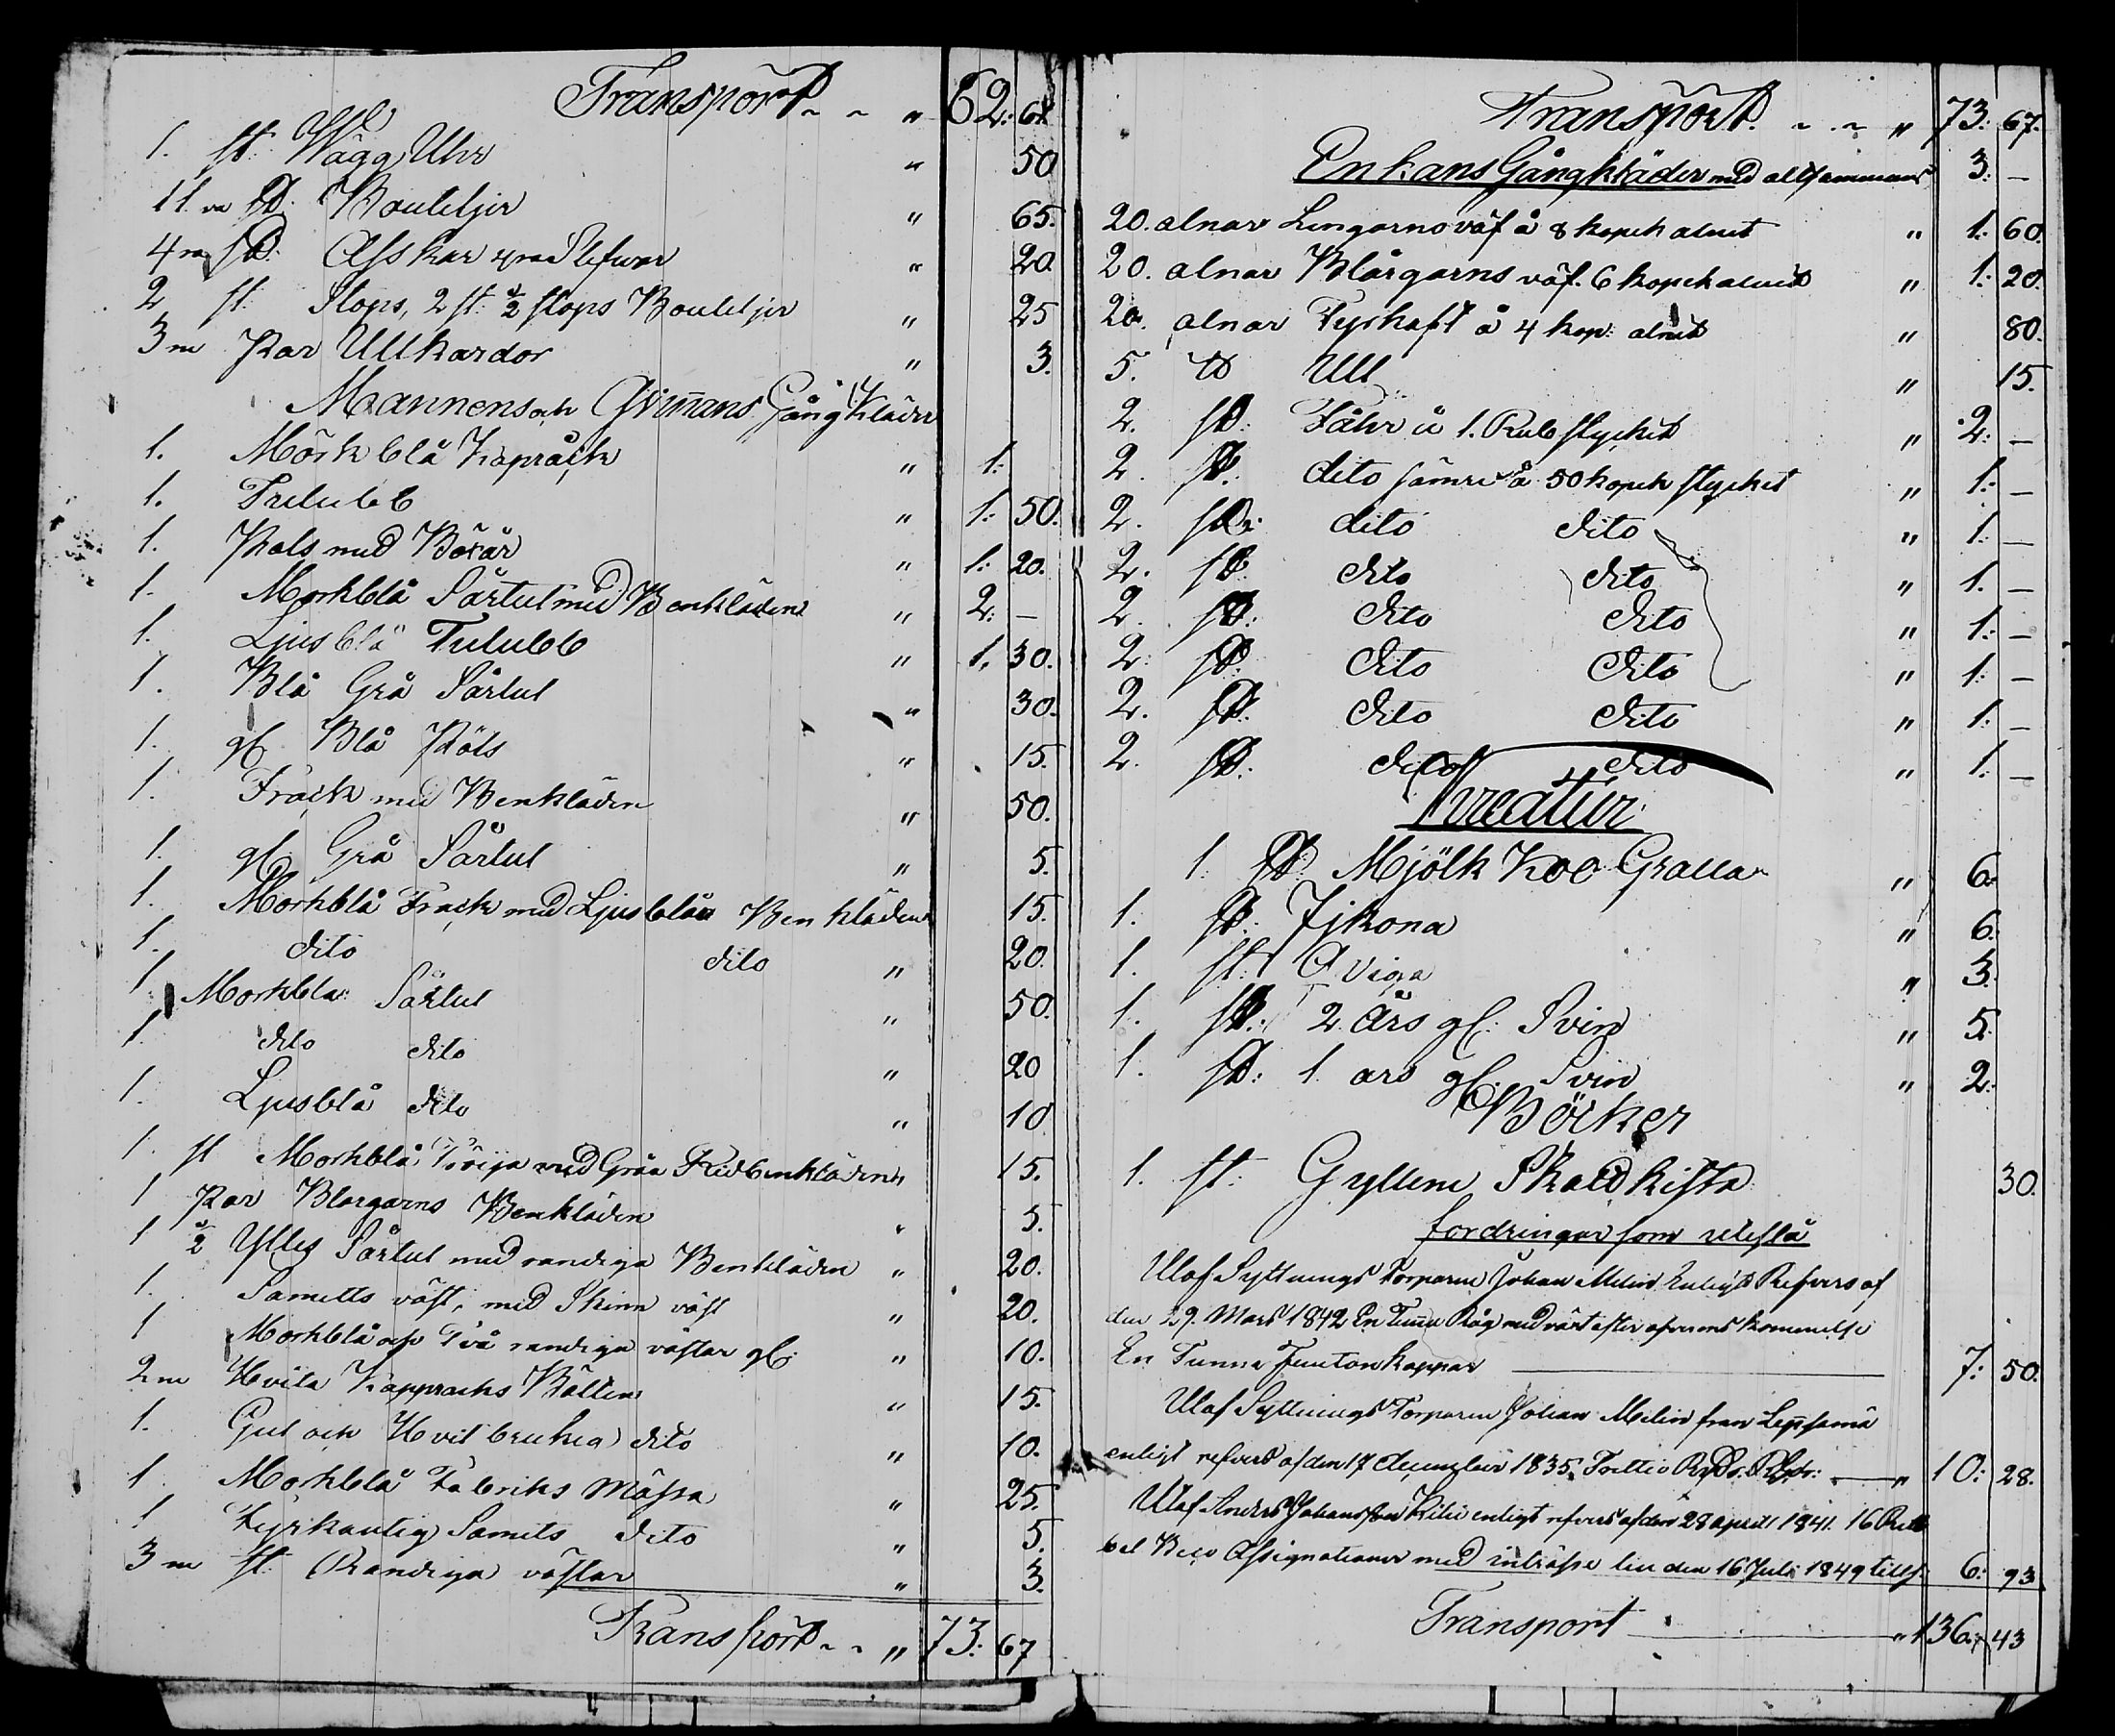 Transport " 62: 61
1. st Wägg Uhr " 50
11. va st: Bouteljer " 65.
4 ra st: Asskar 4 ra Slefwar " 20.
2 st: Stops, 2 st: ½ stops Bouteljer " 25
3 ne Par Ullkardor " 3.
Mannens och Gång Kläder
1. Mörk blå Kapråck " 1:
1. Tulubb " 1: 50.
1. Pals med Böxår " 1: 20.
1. Morkblå Sårtut med Benkläder " 2: –
1. Ljusblå Tulubb " 1. 30.
1. Blå Grå Sårtut " 30.
1. gl Blå Päls " 15.
1. Frack med Benkläder " 50.
1. gl Grå Sårtut " 5.
1. Morkblå Frack med Ljusblåa Benkläder 15.
1. dito dito " 20.
1 Morkbla Sårtut " 50.
1. dito dito " 20
1. Ljusblå dito " 10
1. st Morkblå Tröija med Gråa Benkläder " 15.
1 Par Blargarns Benkläder " 5.
1 ½ Ylles Sårtut med randiga Benkläder " 20.
1. Samitts väst, med Skinn väst " 20.
1 Morkblå och Två randiga västar gl: " 10.
2 ne Hvita Kapprocks Bälten " 15.
1. Gul och Hvit brukea dito " 10.
1. Morkblå Fabriks Mössa " 25.
1 Fyrkantig Samits dito " 5.
3 ne st: Randiga västar " 3.
Transport " 73: 67
Transport. " 73: 67.
Enkans Gångkläder med alltsammans 3: –
20. alnar Lingarns väf å 8 kopek alnet " 1: 60.
20. alnar Blårgarns väf. 6 kopek alnet " 1: 20.
20. alnar Tyskaft å 4 kop: alnet " 80.
5. ℔ Ull " 15.
2. st: Fåhr å 1. Rub stycket " 2: –
2. st: dito sämre å 50 kopek stycket " 1: –
2. st: dito dito " 1: –
2. st: dito dito " 1. –
2. st: dito dito " 1: –
2: st: dito dito " 1: –
2. st: dito dito " 1: –
2. st: dito dito " 1: –
Kreatur
1. st: Mjölk Koo Gralla " 6:
1. st: Ijkona " 6:
1. st: Qviga " 3:
1. st: 2 Års gl: Svin " 5:
1. st: 1. ars gl: Svin " 2:
Böcker
1. st: Gyllene Skattkista 30.
fordringar som utestå
Utaf Syttnings Torparen Johan Melin Enligt Refvers af
den 29. Mars 1842 En Tunna Råg med växt efter öfverens kommelse
En Tunna Femton kappar 7: 50.
Utaf Syttnings Torparen Johan Melin fran
enligt refvers af den 17 december 1835, Trettio 10: 28.
Utaf Anders Johansson enligt refvers af den 28 april 1841. 16
bel Beco Assignationer med inträsse till den 16 Juli 1849 6: 93
Transport " 136: 43